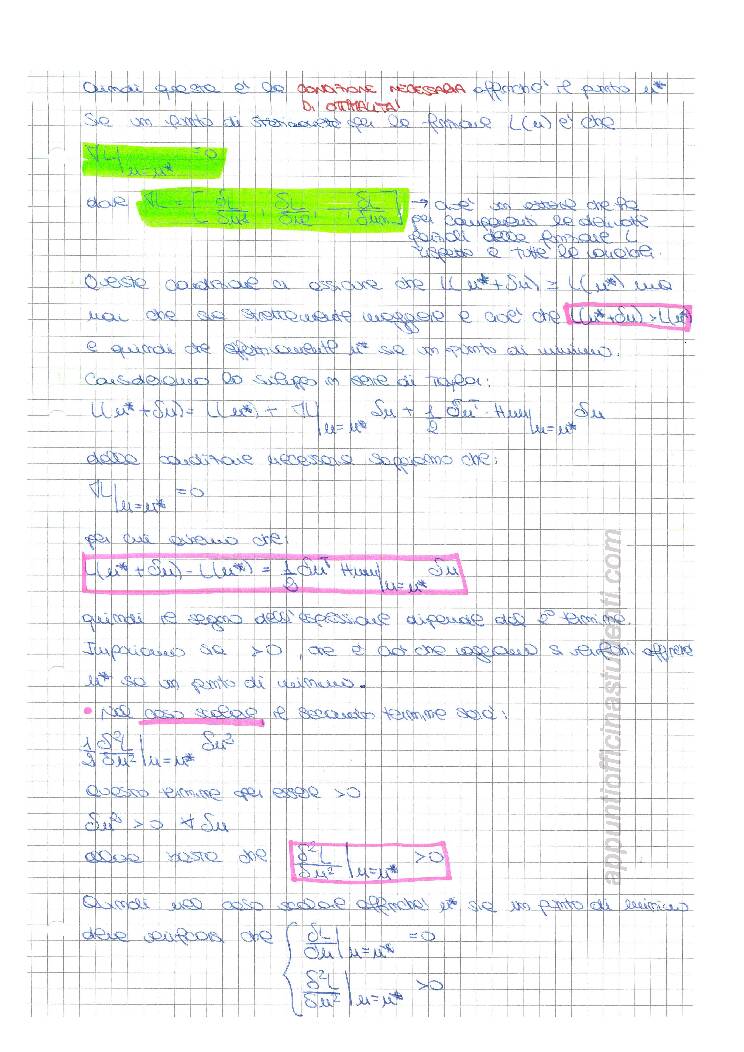 Quindi questa è la CONDIZIONE NECESSARIA affinché il punto u*
DI OTTIMALITA'
sia un punto di stazionarietà per la funzione L(u) è che
∇L|u=u* = 0
dove ∇L = [δL/δu1, δL/δu2, ... δL/δum] → cioè un vettore che ha
per componenti le derivate
parziali della funzione L
rispetto a tutte le variabili.
Questa condizione ci assicura che L(u*+δu) = L(u*) ma
non che sia strettamente maggiore e cioè che L(u*+δu) > L(u*)
e quindi che effettivamente u* sia un punto di minimo.
Consideriamo lo sviluppo in serie di Taylor:
L(u*+δu) = L(u*) + ∇L|u=u* δu + 1/2 δuT · Huu|u=u* δu
dalla condizione necessaria sappiamo che:
∇L|u=u* = 0
per cui avremo che:
L(u*+δu) - L(u*) = 1/2 δuT Huu|u=u* δu
quindi il segno dell'espressione dipende dal 2° termine.
Imponiamo sia >0, che è ciò che vogliamo si verifichi affinché
u* sia un punto di minimo.
• Nel caso scalare il secondo termine sarà:
1/2 δ²L/δu²|u=u* δu²
Questo termine per essere >0
δu² > 0 ∀ δu
allora basta che δ²L/δu²|u=u* >0
Quindi nel caso scalare affinché u* sia un punto di minimo
deve verificarsi che { δL/δu|u=u* = 0
δ²L/δu²|u=u* >0
appuntiofficinastudenti.com